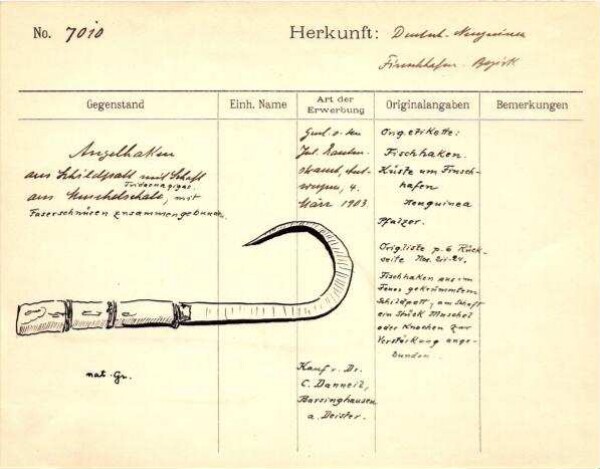 No. 7010
Herkunft: Deutsch-Neuguinea
Finschhafen-Bezirk
Gegenstand
Einh. Name
Art der Erwerbung
Originalangaben
Bemerkungen
Angelhaken
aus Schildpatt mit Schaft
Tridacna gigas
aus Muschelschale, mit
Faserschnüren zusammengebunden.
nat. Gr.
4.
März 1903.
Kauf v. Dr.
C. Danneil,
Barsinghausen
a. Deister.
Orig. etikette:
Fischhaken.
Küste um Finsch-
hafen
Neuguinea
Pfalzer.
Orig. liste p. 6 Rück-
seite Nos.
Fischhaken aus im
Feuer gekrümmtem
Schildpatt, am Schaft
ein Stück Muschel
oder Knochen zur
Verstärkung ange-
bunden.